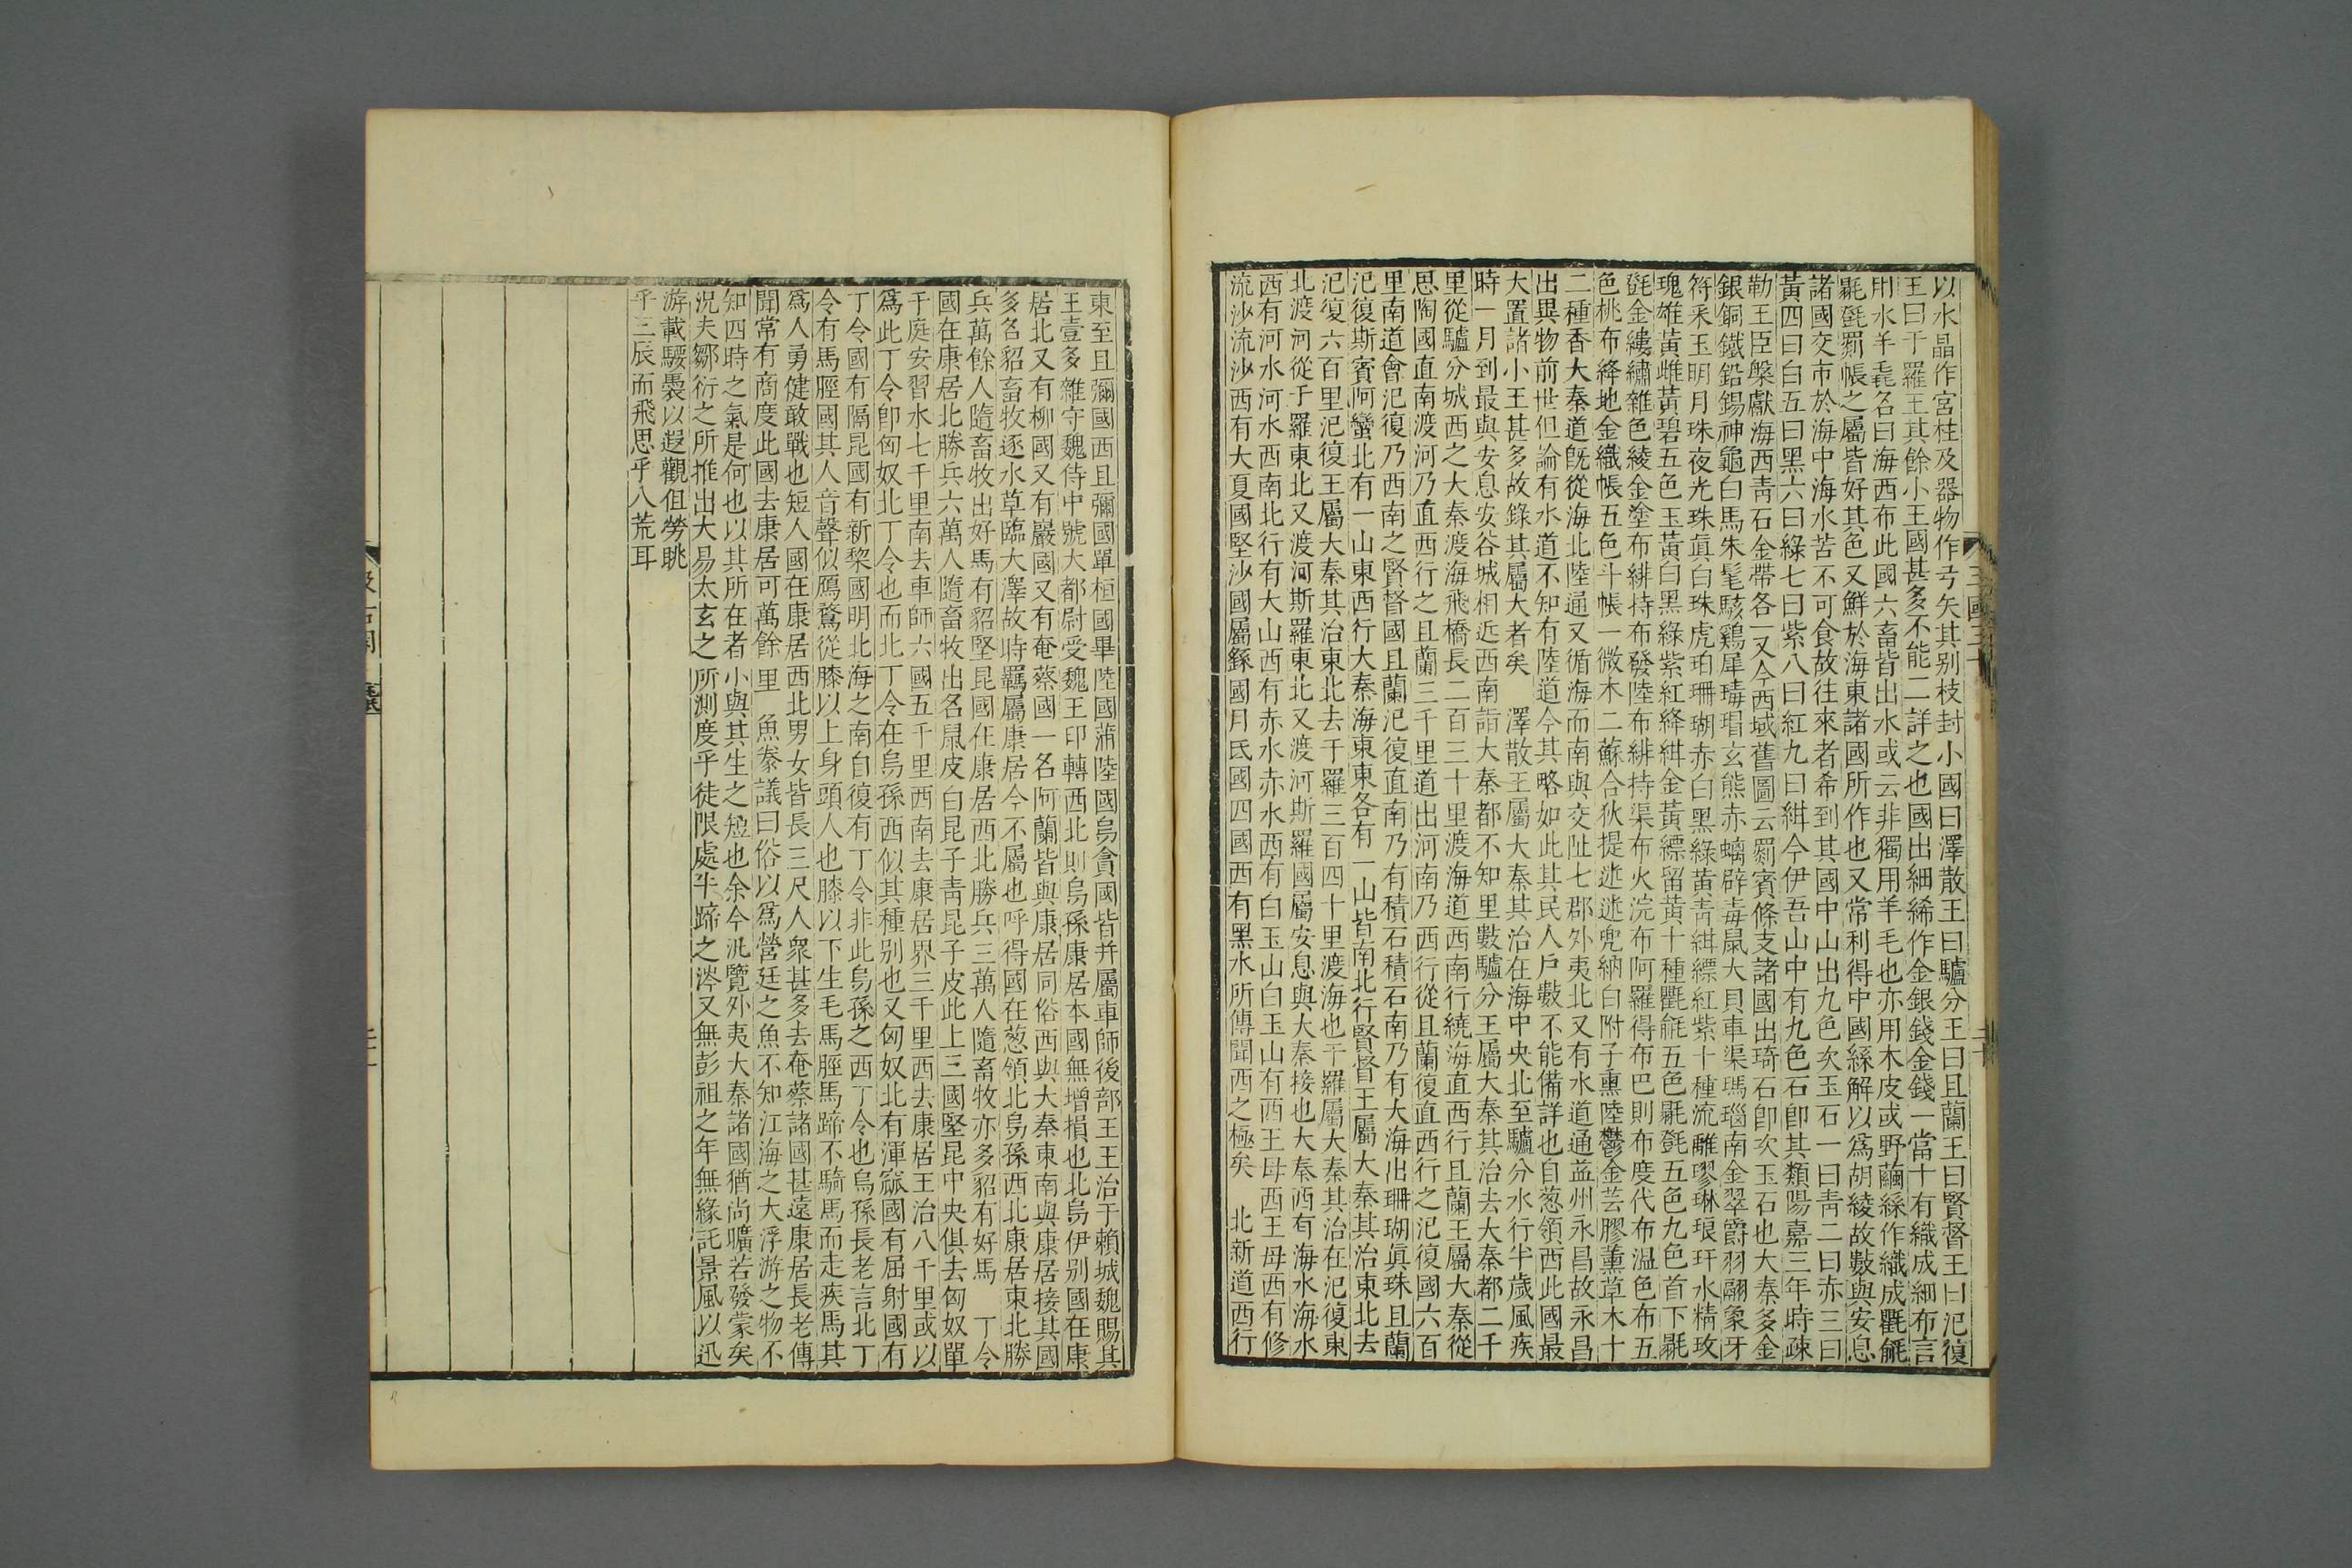 以水晶作宮柱及器物作弓矢其别枝封小國曰澤散王曰驢分王曰且蘭王曰賢督王曰汜復
王曰于羅王其餘小王國甚多不能一二詳之也國出細絺作金銀錢金錢一當十有織成細布言
用水羊毳名曰海西布此國六畜皆出水或云非獨用羊毛也亦用木皮或野繭絲作織成氍毹
毾㲪罽帳之屬皆好其色又鮮於海東諸國所作也又常利得中國絲解以爲胡綾故數與安息
諸國交市於海中海水苦不可食故往來者希到其國中山出九色次玉石一曰青二曰赤三曰
黃四曰白五曰黑六曰綠七曰紫八曰紅九曰紺今伊吾山中有九色石卽其類陽嘉三年時疎
勒王臣槃獻海西青石金帶各一又今西域舊圖云罽賓條支諸國出琦石卽次玉石也大秦多金
銀銅鐵鉛錫神龜白馬朱髦駭鷄犀瑇瑁玄熊赤螭辟毒鼠大貝車渠瑪瑙南金翠爵羽翮象牙
符采玉明月珠夜光珠眞白珠虎珀珊瑚赤白黑綠黃青紺縹紅紫十種流離璆琳琅玕水精玫
瑰雄黃雌黃碧五色玉黃白黑綠紫紅絳紺金黃縹留黃十種氍毹五色毾㲪五色九色首下毾
㲪金縷繡雜色綾金塗布緋持布發陸布緋持渠布火浣布阿羅得布巴則布度代布温色布五
色桃布絳地金織帳五色斗帳一微木二蘇合狄提迷迷兜納白附子熏陸鬱金芸膠薰草木十
二種香大秦道旣從海北陸通又循海而南與交阯七郡外夷北又有水道通益州永昌故永昌
出異物前世但論有水道不知有陸道今其略如此其民人戶數不能備詳也自葱領西此國最
大置諸小王甚多故錄其屬大者矣　澤散王屬大秦其治在海中央北至驢分水行半歲風疾
時一月到最與安息安谷城相近西南詣大秦都不知里數驢分王屬大秦其治去大秦都二千
里從驢分城西之大秦渡海飛橋長二百三十里渡海道西南行繞海直西行且蘭王屬大秦從
思陶國直南渡河乃直西行之且蘭三千里道出河南乃西行從且蘭復直西行之汜復國六百
里南道會汜復乃西南之賢督國且蘭汜復直南乃有積石積石南乃有大海出珊瑚眞珠且蘭
汜復斯賓阿蠻北有一山東西行大秦海東東各有一山皆南北行賢督王屬大秦其治東北去
汜復六百里汜復王屬大秦其治東北去于羅三百四十里渡海也于羅屬大秦其治在汜復東
北渡河從于羅東北又渡河斯羅東北又渡河斯羅國屬安息與大秦接也大秦西有海水海水
西有河水河水西南北行有大山西有赤水赤水西有白玉山白玉山有西王母西王母西有修
流沙流沙西有大夏國堅沙國屬繇國月氏國四國西有黑水所傳聞西之極矣　北新道西行
三國三十
二十
東至且彌國西且彌國單桓國畢陸國蒲陸國烏貪國皆并屬車師後部王王治于賴城魏賜其
王壹多雜守魏侍中號大都尉受魏王印轉西北則烏孫康居本國無增損也北烏伊别國在康
居北又有柳國又有巖國又有奄蔡國一名阿蘭皆與康居同俗西與大秦東南與康居接其國
多名貂畜牧逐水草臨大澤故時羈屬康居今不屬也呼得國在葱領北烏孫西北康居東北勝
兵萬餘人隨畜牧出好馬有貂堅昆國在康居西北勝兵三萬人隨畜牧亦多貂有好馬　丁令
國在康居北勝兵六萬人隨畜牧出名鼠皮白昆子青昆子皮此上三國堅昆中央俱去匈奴單
于庭安習水七千里南去車師六國五千里西南去康居界三千里西去康居王治八千里或以
爲此丁令卽匈奴北丁令也而北丁令在烏孫西似其種别也又匈奴北有渾窳國有屈射國有
丁令國有隔昆國有新棃國明北海之南自復有丁令非此烏孫之西丁令也烏孫長老言北丁
令有馬脛國其人音聲似鴈鶩從膝以上身頭人也膝以下生毛馬脛馬蹄不騎馬而走疾馬其
爲人勇健敢戰也短人國在康居西北男女皆長三尺人衆甚多去奄蔡諸國甚遠康居長老傳
聞常有商度此國去康居可萬餘里　魚豢議曰俗以爲營廷之魚不知江海之大浮游之物不
知四時之氣是何也以其所在者小與其生之短也余今氾覽外夷大秦諸國猶尚曠若發蒙矣
況夫鄒衍之所推出大易太玄之所測度乎徒限處牛蹄之涔又無彭祖之年無緣託景風以迅
游載騕褭以遐觀但勞眺
乎三辰而飛思乎八荒耳